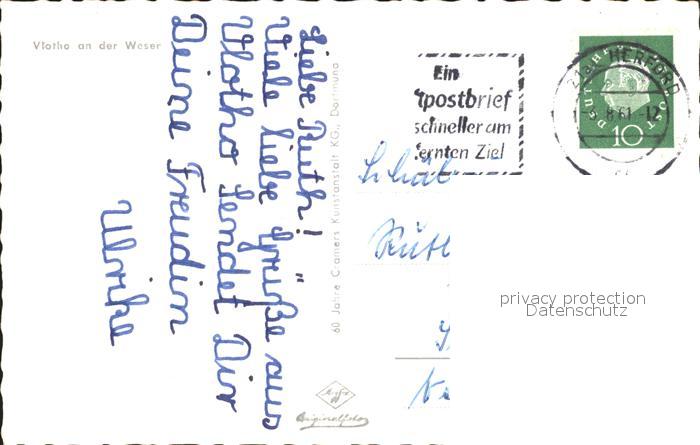 Vlotho an der Weser
Liebe Ruth!
Viele liebe Grüße aus
Vlotho sendet Dir
Deine Freudin
Ulrike
60 Jahre Cramers Kunstanstalt KG., Dortmund
Ein
postbrief
schneller am
fernten Ziel
HERFORD
DEUTSCHE BUNDESPOST
10
privacy protection
Datenschutz
Originalfoto